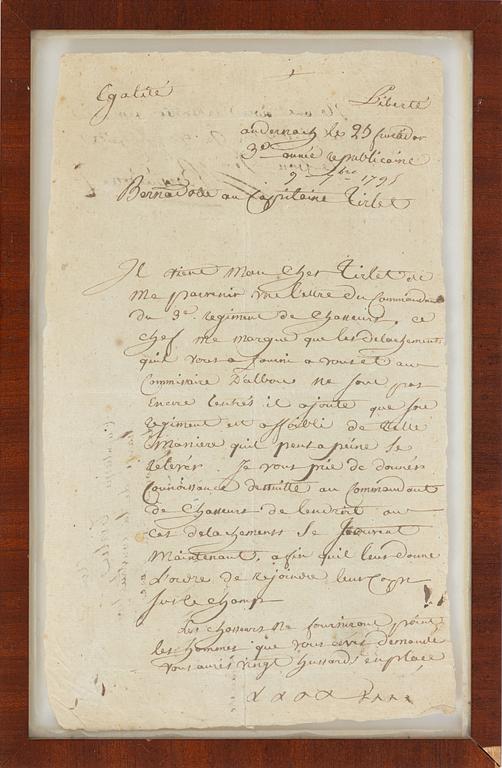 Egalité
Liberté
andernach le 23 fructidor
3e année republicaine
9 7bre 1795
Bernadotte au Capitaine Tirlet
Il vient Mon Cher Tirlet de
me parvenir une lettre du Commandant
du 3e regiment de Chasseurs, ce
chef me marque que les detachements
quil vous a fourni a vous et au
Commissaire D'albon ne sont pas
encore rentrés il ajoute que son
regiment est affoibli de telle
maniere quil peut a peine se
relever. Je vous prie de donner
Connoissance dessuitte au Commandant
de Chasseurs de lendroit ou
ces detachements se trouvent
Maintenant, afin quil leur donne
L'ordre de rejoindre leur Corps
sur le champ
Les chasseurs ne fourniront point
les hommes que vous avez demandé
vous aurés vingt hussards en place